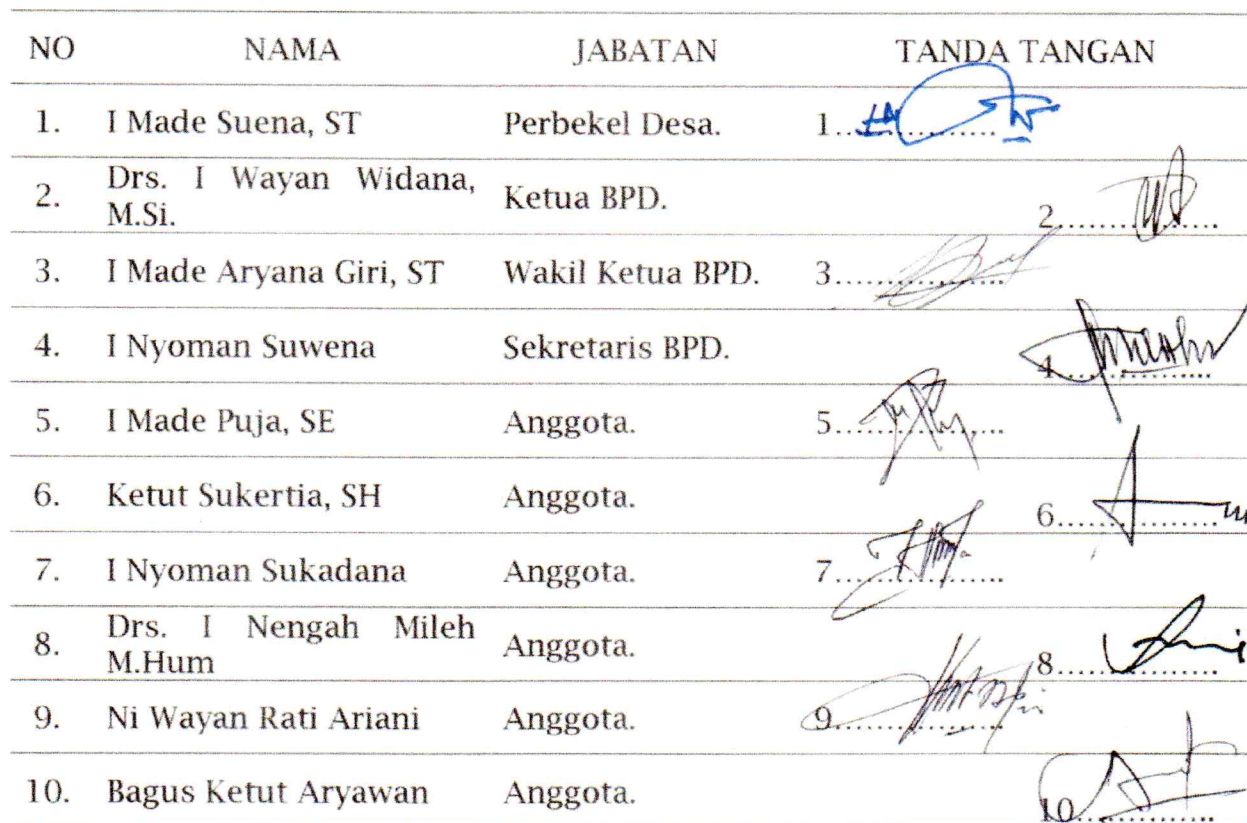 NO NAMA JABATAN TANDA TANGAN
1. I Made Suena, ST Perbekel Desa. 1................
2. Drs. I Wayan Widana, M.Si. Ketua BPD. 2................
3. I Made Aryana Giri, ST Wakil Ketua BPD. 3................
4. I Nyoman Suwena Sekretaris BPD. 4................
5. I Made Puja, SE Anggota. 5................
6. Ketut Sukertia, SH Anggota. 6................
7. I Nyoman Sukadana Anggota. 7................
8. Drs. I Nengah Mileh M.Hum Anggota. 8................
9. Ni Wayan Rati Ariani Anggota. 9................
10. Bagus Ketut Aryawan Anggota. 10................